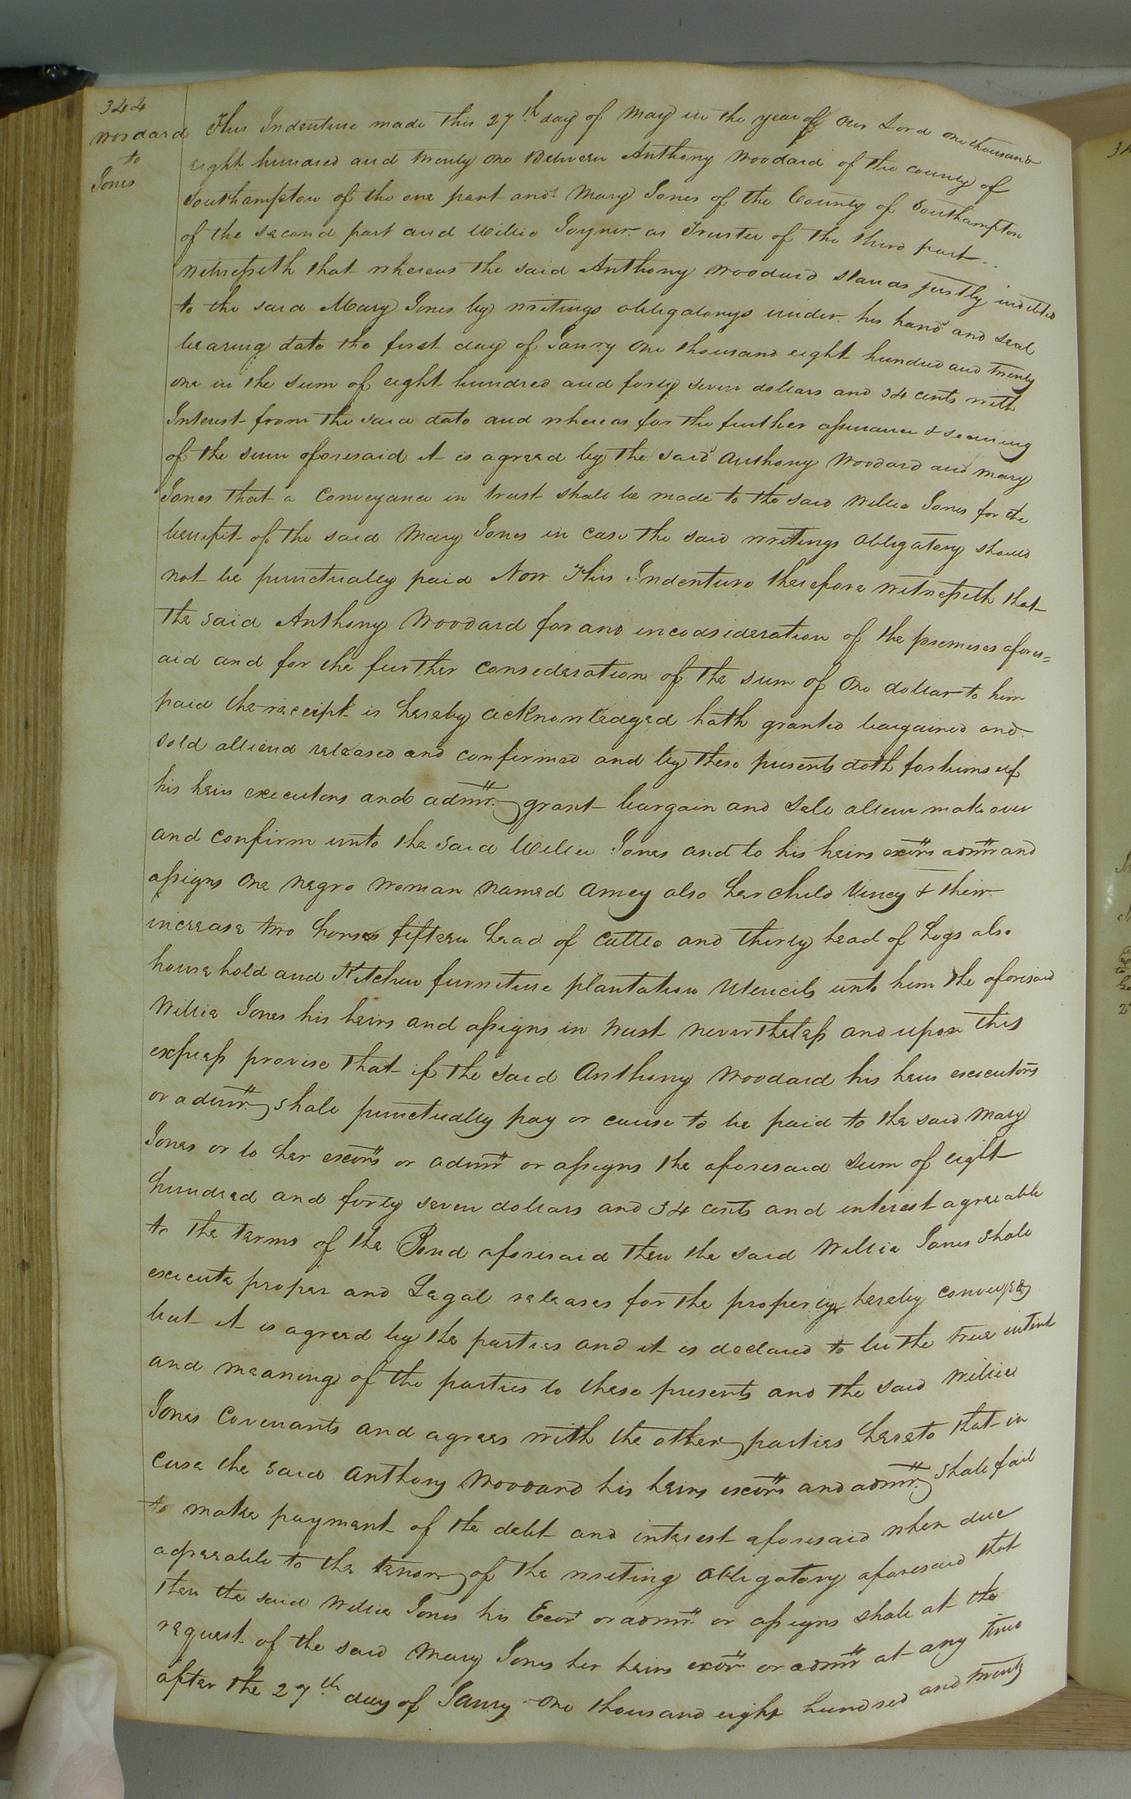 344
Woodard
to
Jones
This Indenture made this 27th day of May in the year of our Lord one thousand
eight hundred and twenty one Between Anthony Woodard of the county of
Southampton of the one part and Mary Jones of the County of Southampton
of the second part and Willie Joyner as Trustee of the third part
Witnesseth that whereas the said Anthony Woodard stands justly indebted
to the said Mary Jones by writings obligatorys under his hand and seal
bearing date the first day of Janry one thousand eight hundred and twenty
one in the sum of eight hundred and forty seven dollars and 34 cents with
Interest from the said date and whereas for the further assurance & securing
of the sum aforesaid it is agreed by the said Anthony Woodard and Mary
Jones that a Conveyance in trust shall be made to the said Willie Jones for the
benefit of the said Mary Jones in case the said writings obligatory should
not be punctually paid Now This Indenture therefore witnesseth that
the said Anthony Woodard for and inconsideration of the premises afores=
aid and for the further consideration of the sum of one dollar to him
paid the receipt is hereby acknowledged hath granted bargained and
sold aliend released and confirmed and by these presents doth for himself
his heirs executors and admrs. grant bargain and sell alien make over
and confirm unto the said Willie Jones and to his heirs exors admrs and
assigns one negro woman named Amey also her child Viney & their
increase two horses fifteen head of cattle and thirty head of hogs also
household and Kitchen furniture plantation Utencils unto him the aforesaid
Willie Jones his heirs and assigns in trust nevertheless and upon this
express proviso that if the said Anthony Woodard his heirs executors
or admrs. shall punctually pay or cause to be paid to the said Mary
Jones or to her exors or admrs or assigns the aforesaid sum of eight
hundred and forty seven dollars and 34 cents and interest agreeable
to the terms of the Bond aforesaid then the said Willie Jones shall
execute proper and Legal releases for the property hereby conveyed
but it is agreed by the parties and it is declared to be the true intent
and meaning of the parties to these presents and the said Willie
Jones Covenants and agrees with the other parties hereto that in
case the said Anthony Woodard his heirs exors and admrs. shall fail
to make payment of the debt and interest aforesaid when due
agreeable to the tenor of the writing obligatory aforesaid that
then the said Willie Jones his Exors or admrs. or assigns shall at the
request of the said Mary Jones her heirs exors or admrs at any time
after the 27th day of Janry one thousand eight hundred and twenty